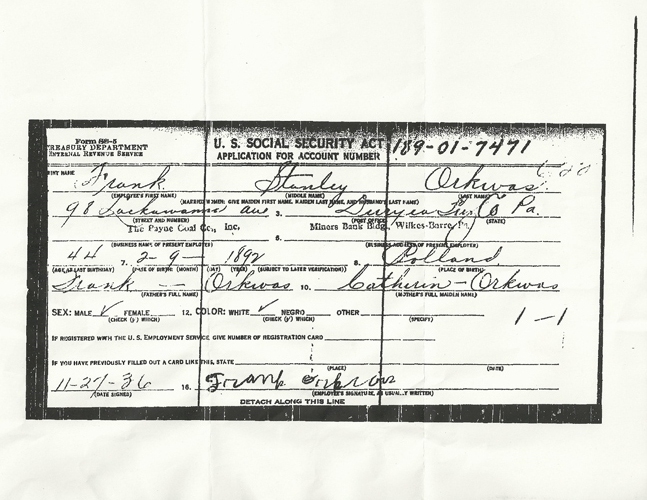 Form SS-5
TREASURY DEPARTMENT
INTERNAL REVENUE SERVICE
U. S. SOCIAL SECURITY ACT
APPLICATION FOR ACCOUNT NUMBER
189-01-7471
PRINT NAME
Frank Stanley Orkwas
(EMPLOYEE'S FIRST NAME) (MIDDLE NAME) (LAST NAME)
(MARRIED WOMEN: GIVE MAIDEN FIRST NAME, MAIDEN LAST NAME, AND HUSBAND'S LAST NAME)
98 Lackawanna ave 3. Duryea Luz. Co Pa.
(STREET AND NUMBER) (POST OFFICE) (STATE)
The Payne Coal Co., Inc. 5. Miners Bank Bldg., Wilkes-Barre, Pa.
(BUSINESS NAME OF PRESENT EMPLOYER) (BUSINESS ADDRESS OF PRESENT EMPLOYER)
44 7. 2-9-1892 8. Polland
(AGE AT LAST BIRTHDAY) (DATE OF BIRTH: (MONTH) (DAY) (YEAR) (SUBJECT TO LATER VERIFICATION)) (PLACE OF BIRTH)
Frank - Orkwas 10. Catherin - Orkwas
(FATHER'S FULL NAME) (MOTHER'S FULL MAIDEN NAME)
SEX: MALE ✓ FEMALE 12. COLOR: WHITE ✓ NEGRO OTHER
(CHECK (✓) WHICH) (CHECK (✓) WHICH) (SPECIFY)
1-1
IF REGISTERED WITH THE U. S. EMPLOYMENT SERVICE, GIVE NUMBER OF REGISTRATION CARD
IF YOU HAVE PREVIOUSLY FILLED OUT A CARD LIKE THIS, STATE
(PLACE) (DATE)
11-27-36 16. Frank Orkwas
(DATE SIGNED) (EMPLOYEE'S SIGNATURE, AS USUALLY WRITTEN)
DETACH ALONG THIS LINE